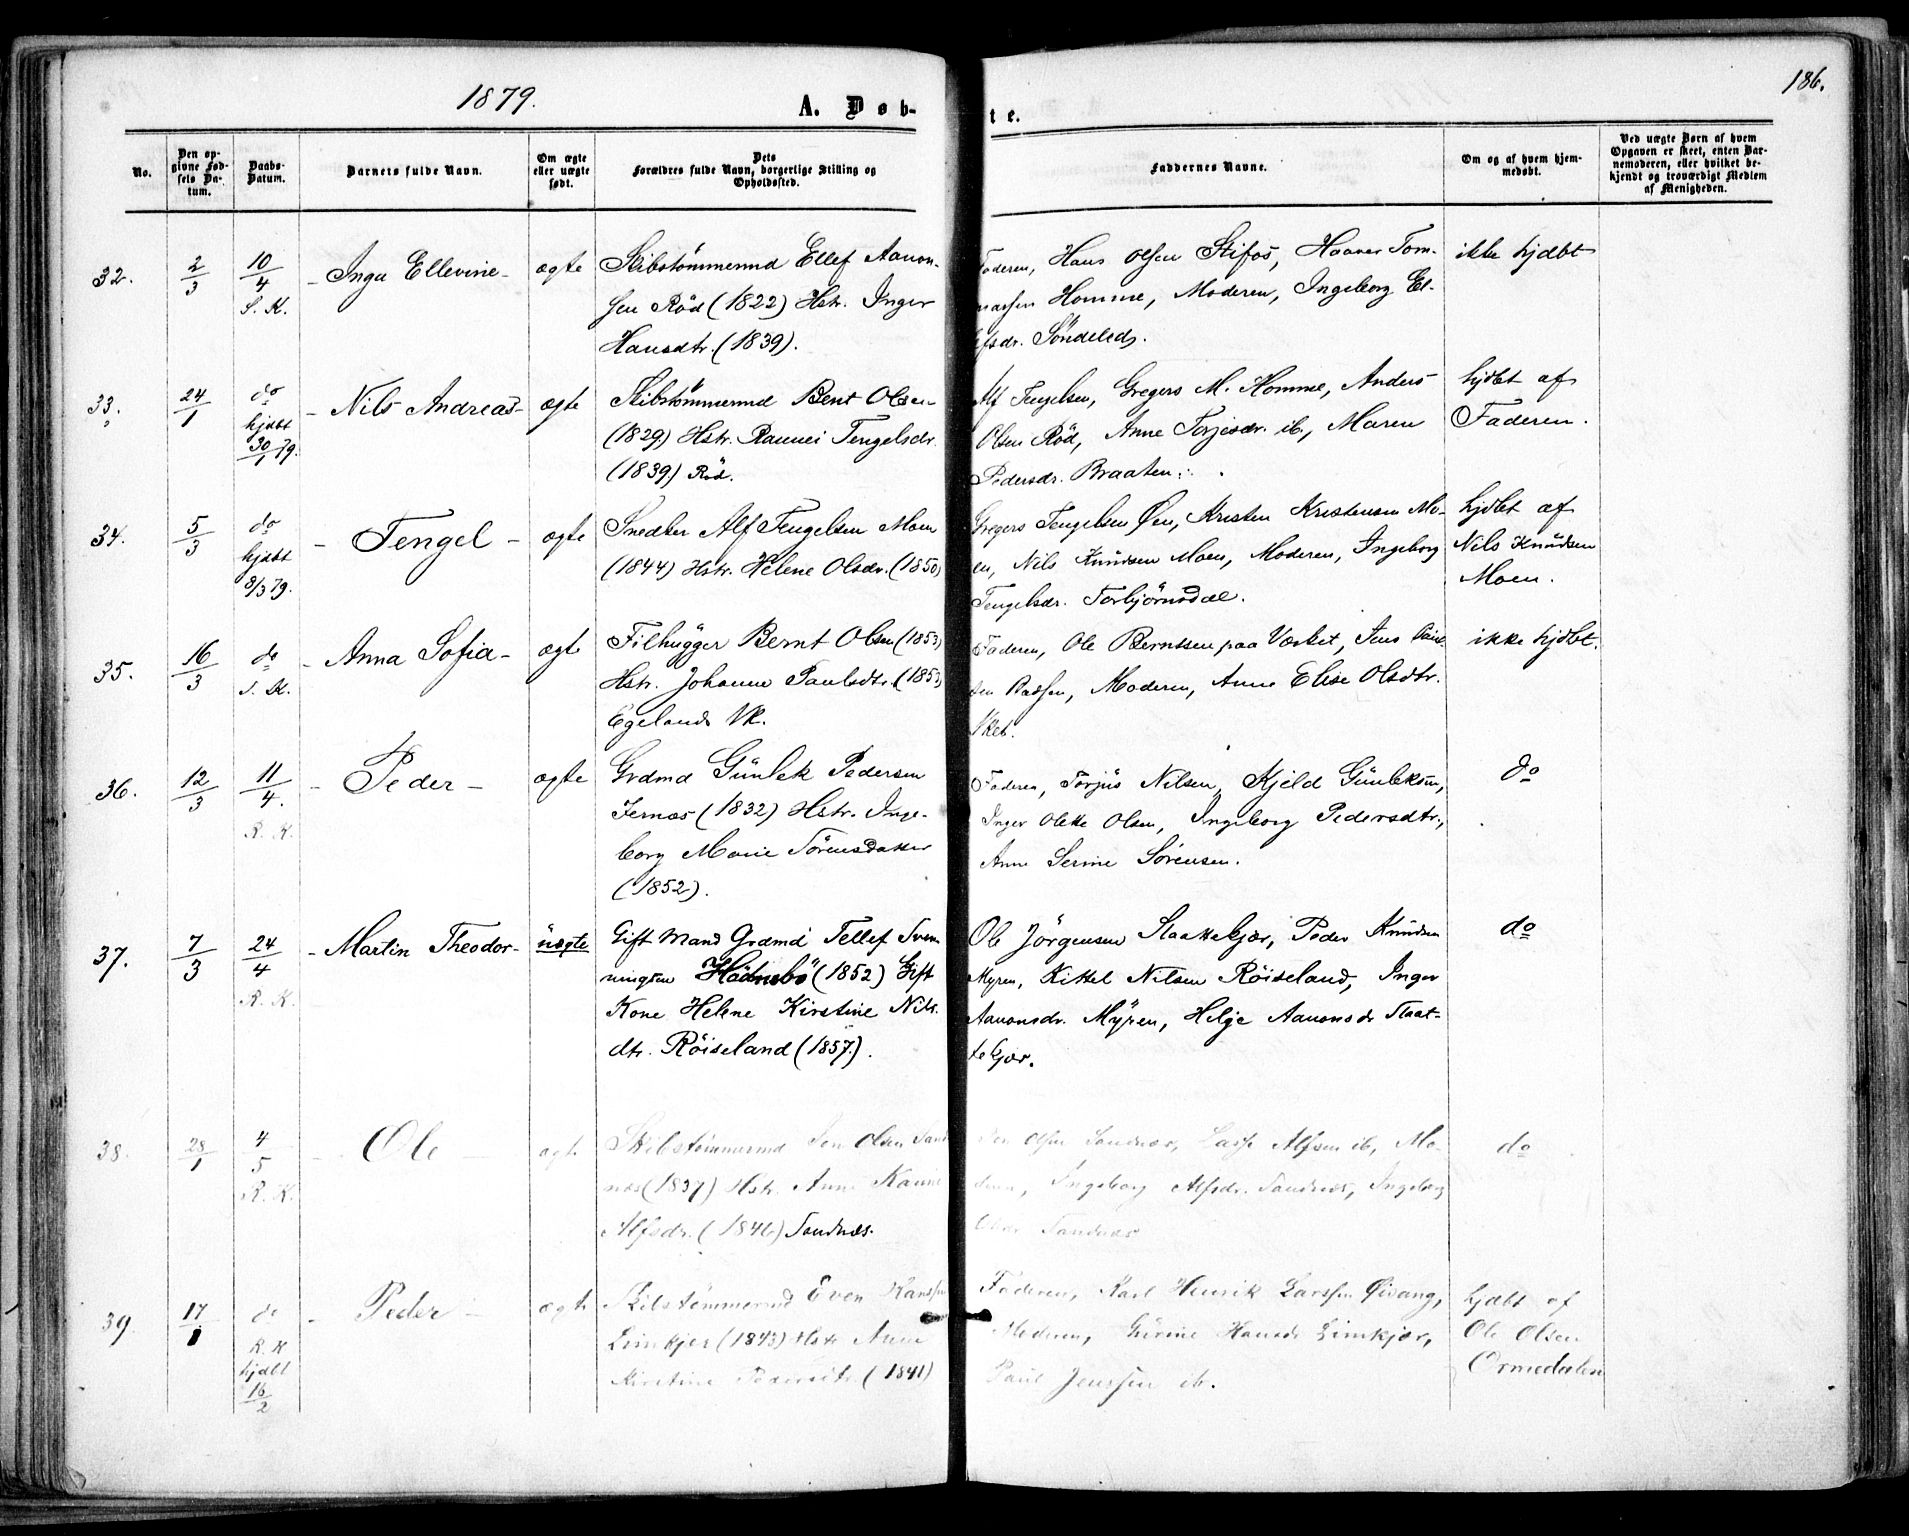 1879.
A. Døb-
te.
186.
No.
Den op-
givne Fød-
sels Da-
tum.
Daabs-
Datum.
Barnets fulde Navn.
Om ægte
eller uægte
født.
Dets
Forældres fulde Navn, borgerlige Stilling og
Opholdssted.
Faddernes Navne.
Om og af hvem hjem-
medøbt.
Ved uægte Børn af hvem
Opgaven er skeet, enten Bar-
nemoderen, eller hvilket be-
kjendt og troværdigt Medlem
af Menigheden.
32.
2/3
10/4
S. K.
- Inga Ellevine -
ægte
Skibstömmermd Ellef Aanon-
sen Röd (1822) Hstr. Inger
Hansdtr. (1839).
Faderen, Hans Olsen Stifos, Haaver Tom-
massen Homme, Moderen, Ingeborg El-
lefsdr. Söndeled.
ikke hjdbt
33.
24/1
do
hjdbt
30/1 79.
- Nils Andreas -
ægte
Skibstömmermd Bent Olsen
(1829) Hstr. Rannei Tengelsdr.
(1839.) Röd.
Alf Tengelsen, Gregers M. Homme, Anders
Olsen Röd, Anne Torjesdr. ib., Maren
Pedersdr. Braaten.
hjdbt af
Faderen.
34.
5/3
do
hjdbt
8/3 79.
- Tengel -
ægte
Snedker Alf Tengelsen Moen
(1844) Hstr. Helene Olsdr. (1850)
Gregers Tengelsen Øen, Kristen Kristensen Mo-
en, Nils Knudsen Moen, Moderen, Ingeborg
Tengelsdr. Torbjörnsdal.
hjdbt af
Nils Knudsen
Moen.
35.
16/3
do
S. K.
- Anna Sofia -
ægte
Filhugger Bernt Olsen (1853)
Hstr. Johanne Paulsdtr. (1853)
Egelands Vk.
Faderen, Ole Berntsen paa Værket, Jens
sen Bassen, Moderen, Anne Elise Olsdtr.
Vket.
ikke hjdbt.
36.
12/3
11/4.
R. K.
- Peder -
ægte
Grdmd Gunlek Pedersen
Jernæs (1832) Hstr. Inge-
borg Marie Sörensdatter
(1852).
Faderen, Torjus Nilsen, Kjeld Gunleksen,
Inger Olette Olsen, Ingeborg Pedersdtr.,
Anne Serine Sörensen.
do
37.
7/3
24/4
R. K.
- Martin Theodor -
uægte
Gift Mand Grdmd Tellef Sven-
ningsen Hödnebö (1852) Gift
Kone Helene Kirstine Nils-
dtr. Röiseland (1857.).
Ole Jörgensen Slaattekjær, Peder Knudsen
Myren, Kittel Nilsen Röiseland, Inger
Aanonsdr. Myren, Helje Aanonsdr Slaat-
tekjær.
do
38.
28/1
4/5
R. K.
- Ole -
ægte
Skibstömmermd Jen Olsen Sand-
næs (1837) Hstr. Anne Karine
Alfsdr. (1846) Sandnæs.
Jen Olsen Sandnæs, Lasse Alfsen ib, Mo-
deren, Ingeborg Alfsdr. Sandnæs, Ingeborg
Sandnæs
do
39.
17/1
do
R. K
hjdbt
16/2
- Peder -
ægte
Skibstömmermd Even Hanssen
Limkjer (1843) Hstr Anne
Kirstine Pedersdtr. (1841)
Faderen, Karl Henrik Larssen Øisang,
Moderen, Gurine Hansdr Limkjær,
Paul Jenssen ib.
hjdbt af
Ole Olsen
Ormedalen